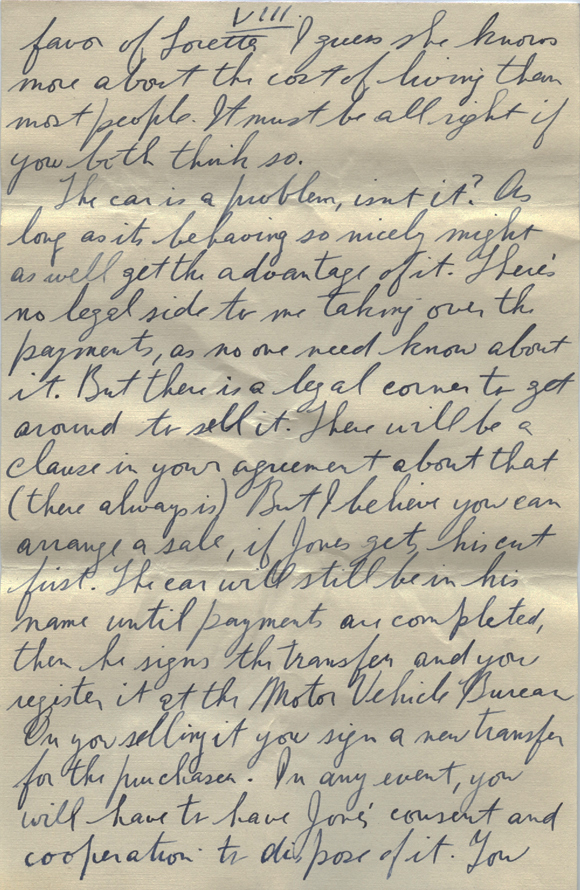 VIII.
favor of Loretta I guess she knows
more about the cost of living than
most people. It must be all right if
you both think so.
The car is a problem, isnt it? As
long as its behaving so nicely might
as well get the advantage of it. There's
no legal side to me taking over the
payments, as no one need know about
it. But there is a legal corner to get
around to sell it. There will be a
clause in your agreement about that
(there always is) But I believe you can
arrange a sale, if Jones gets his cut
first. The car will still be in his
name until payments are completed,
then he signs the transfer and you
register it at the Motor Vehicle Bureau
On you selling it you sign a new transfer
for the purchaser. In any event, you
will have to have Jones' consent and
cooperation to dispose of it. You